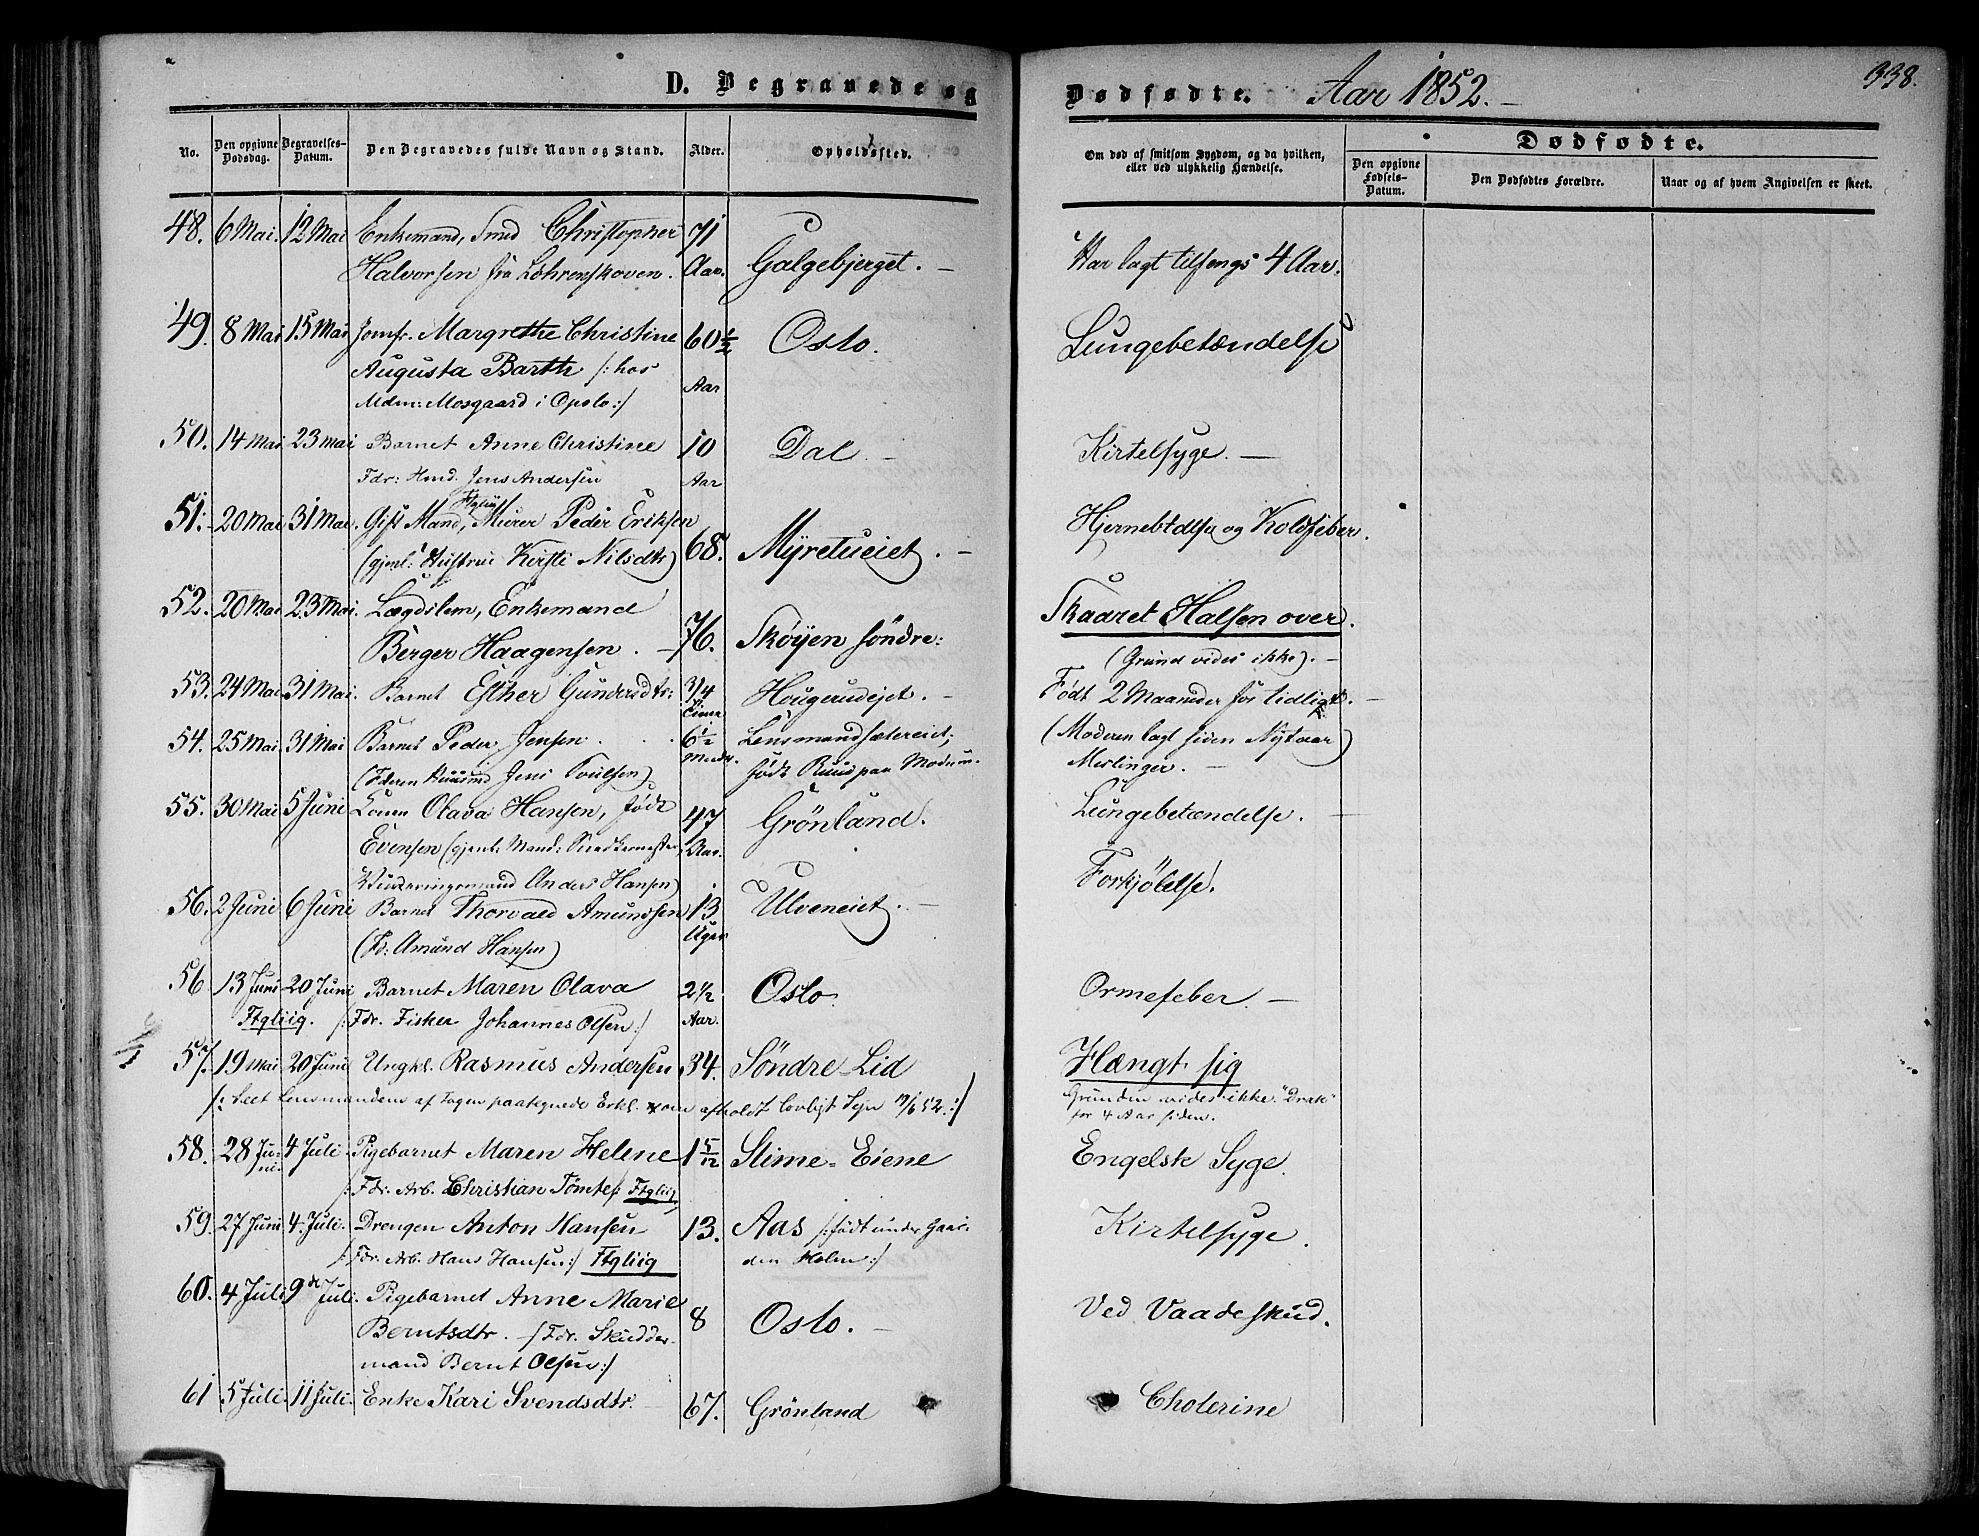 D. Begravede og Dødfødte. Aar 1852. 338.
No. Den opgivne Dødsdag. Begravelses-Datum. Den Begravedes fulde Navn og Stand. Alder. Opholdssted. Om død af smitsom Sygdom, og da hvilken, eller ved ulykkelig Hændelse. Dødfødte.
Den opgivne Fødsels-Datum. Den Dødfødtes Forældre. Naar og af hvem Angivelsen er skeet.
48. 6 Mai. 12 Mai Enkemand, Smed Christopher 71
Halvorsen fra Lohrenskoven. Aar. Galgebjerget. — Har lagt tilsengs 4 Aar.
49. 8 Mai 15 Mai Jomfr. Margrethe Christine 60½ Oslo. Lungebetændelse
Augusta Barth /: hos Aar
Mdm: Mosgaard i Opslo :/
50. 14 Mai 23 Mai Barnet Anne Christine 10 Dal. — Kirtelsyge. —
Fdr: Hmd. Jens Andersen Aar
51. 20 Mai 31 Mai. Gift Mand, Ftgliig Murer Peder Eriksen Hjernebtdlse og Koldfeber.
(gjenl: Hustrue Kirsti Nilsdtr) 68. Myretueiet. —
52. 20 Mai 23 Mai. Lægdslem, Enkemand Skaaret Halsen over.
Berger Haagensen. — 76. Skøyen søndre: (Grund vides ikke). —
53. 24 Mai 31 Mai. Barnet Esther Gundersdtr: 3/4 Timer Hougerudejet. — Født 2 Maaneder for tidligt. —
54. 25 Mai 31 Mai Barnet Peder Jensen 6½ Mndr. Lensmandsætereiet; (Moderen lagt siden Nytaar)
(Fderen Huusmd Jens Poulsen) født Ruud paa Modum. Meslinger. —
55. 30 Mai 5 Juni Konen Olava Hansen, født 47 Grönland. Lungebetændelse. —
Evensen (gjenl: Mand: Snedkermester, Aar.
Vurderingsmand Anders Hansen) Forkjølelse.
56. 2 Juni 6 Juni Barnet Thorvald Amundsen 13 Ulveneiet. —
(Fd: Amund Hansen) Uger
56 13 Juni 20 Juni Barnet Maren Olava 2½ Oslo Ormefeber —
Ftgliig. /: Fdr. Fisker Johannes Olsen :/ Aar.
57. 19 Mai 20 Juni Ungkl. Rasmus Andersen 34. Söndre Lid Hængt sig
/: Seet Lensmandens af Fogen paategnede Erkl. om afholdt lovligt Syn 19/6 52. :/ Grunden vides ikke. "Drak"
for 4 Aar siden.
58. 28 Juni 4 Juli Pigebarnet Maren Helene 1 5/12 Slime-Eiene Engelsk Syge.
/: Fdr. Arb. Christian Tömte :/ Ftgliig
59. 27 Juni 4. Juli. Drengen Anton Hansen 13. Aas /: født under Gaar- Kirtelsyge.
/: Fdr. Arb. Hans Hansen :/ Ftgliig den Holm :/
60. 4 Juli 9de Juli. Pigebarnet Anne Marie
Berntsdtr. — /: Fdr. Skudder- 8 Oslo. — Ved Vaadeskud.
mand Bernt Olsen :/
61 5 Juli 11 Juli. Enke Kari Svendsdtr. 67. Grönland Cholerine